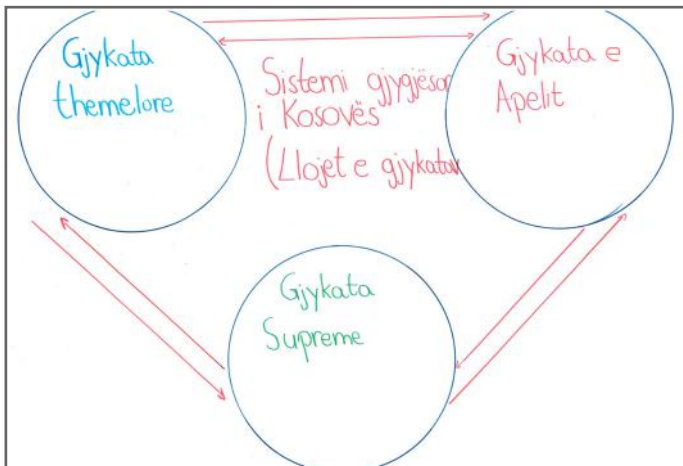 Gjykata
themelore
Sistemi gjygjësor
i Kosovës
(Llojet e gjykatav
Gjykata e
Apelit
Gjykata
Supreme